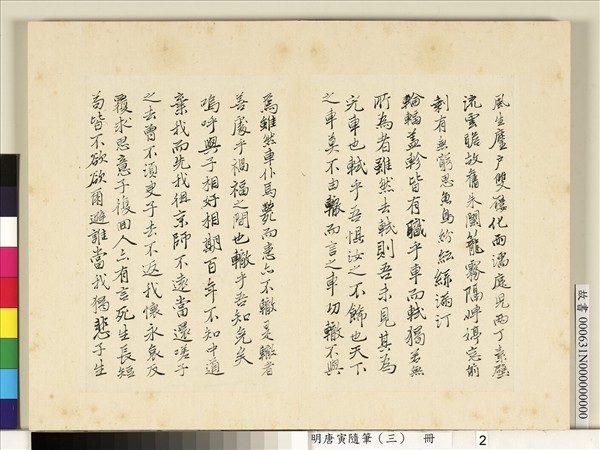 風生塵戶雙化雨濡庭見兩丁素壁
流雲瞻故舊朱闌籠霧隔娉婷忘俯
有無窮思魚鳥紛紜綠滿汀
輪輻蓋軫皆有職乎車而軾獨若無
所為者雖然去軾則吾未見其為
完車也軾乎吾懼汝之不飾也天下
之車莫不由轍而言之車功轍不與
焉雖然車仆馬斃而患亦不轍是轍者
善處乎禍福之間也轍乎吾知免矣
嗚呼與子相好相期百年不知中道
棄我而先我徂京師不遠當還嗟子
之去曾不須臾子去不返我懷永哀反
覆求思意子復回人亦有言死生長短
苟皆不欲欲爾避誰當我獨悲子生
故書000631N000000000
明唐寅隨筆（三） 冊 2